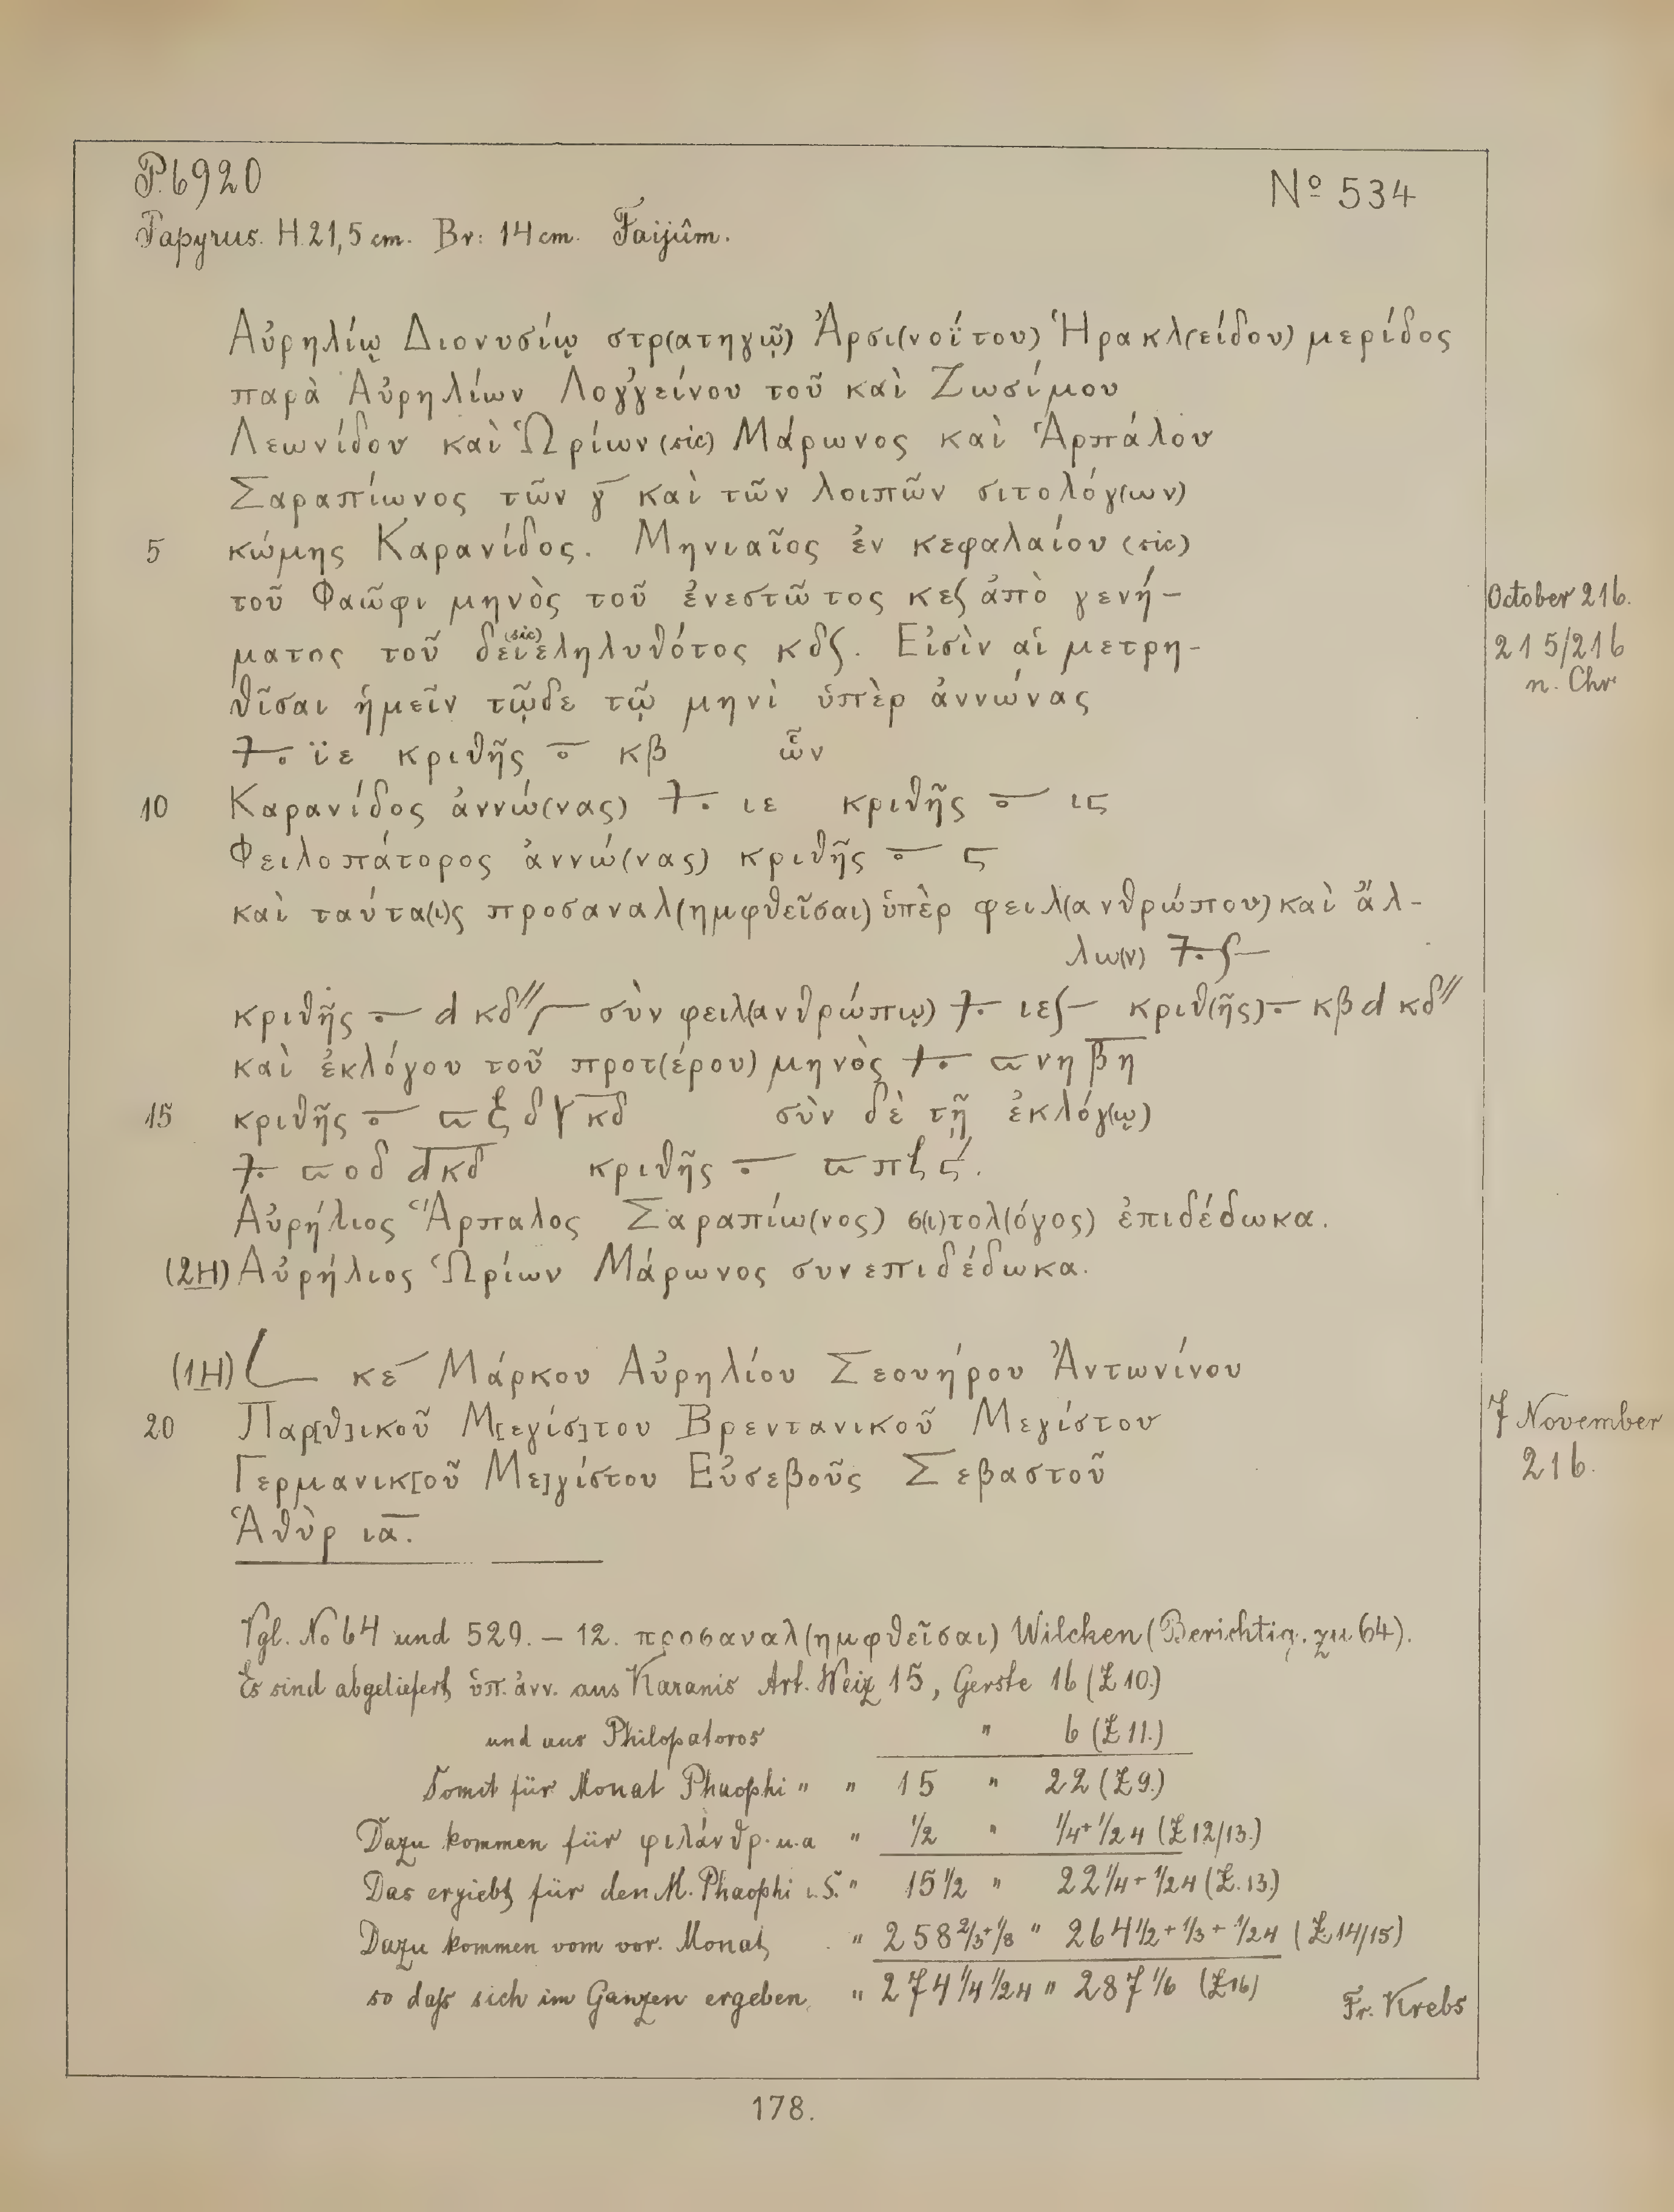 P. 6920
Nº 534
Papyrus. H. 21,5 cm. Br: 14 cm. Faijûm.
Αὐρηλίῳ Διονυσίῳ στρ(ατηγῷ) Ἀρσι(νοΐτου) Ἡρακλ(είδου) μερίδος
παρὰ Αὐρηλίων Λογ'γείνου τοῦ καὶ Ζωσίμου
Λεωνίδου καὶ Ὡρίων (sic) Μάρωνος καὶ Ἁρπάλου
Σαραπίωνος τῶν γ̅ καὶ τῶν λοιπῶν σιτολόγ(ων)
5 κώμης Καρανίδος. Μηνιαῖος ἐν κεφαλαίου (sic)
τοῦ Φαῶφι μηνὸς τοῦ ἐνεστῶτος κεʃ ἀπὸ γενή-
October 216.
ματος τοῦ δειεληλυθότος (sic) κδʃ. Εἰσὶν αἱ μετρη-
215/216
n. Chr.
θῖσαι ἡμεῖν τῷδε τῷ μηνὶ ὑπὲρ ἀννώνας
ϊε κριθῆς κβ ὧν
10 Καρανίδος ἀννώ(νας) ιε κριθῆς ιϛ
Φειλοπάτορος ἀννώ(νας) κριθῆς ϛ
καὶ ταύτα(ι)ς προσαναλ(ημφθεῖσαι) ὑπὲρ φειλ(ανθρώπου) καὶ ἄλ-
λω(ν)
κριθῆς d κδ// σὺν φειλ(ανθρώπῳ) ιεʃ κριθ(ῆς) κβ d κδ//
καὶ ἐκλόγου τοῦ προτ(έρου) μηνὸς σνη β̅η̅
15 κριθῆς σξδ κ̅δ̅ σὺν δὲ τῇ ἐκλόγ(ῳ)
σοδ d̅κ̅δ̅ κριθῆς σπζ ϛ'.
Αὐρήλιος Ἅρπαλος Σαραπίω(νος) σ(ι)τολ(όγος) ἐπιδέδωκα.
(2H) Αὐρήλιος Ὡρίων Μάρωνος συνεπιδέδωκα.
(1H) L κε̅ Μάρκου Αὐρηλίου Σεουήρου Ἀντωνίνου
20 Παρ[θ]ικοῦ Μ[εγίσ]του Βρεντανικοῦ Μεγίστου
7 November
216.
Γερμανικ[οῦ Με]γίστου Εὐσεβοῦς Σεβαστοῦ
Ἁθὺρ ια̅.
Vgl. No 64 und 529. – 12. προσαναλ(ημφθεῖσαι) Wilcken (Berichtig. zu 64).
Es sind abgeliefert ὑπ. ἀνν. aus Karanis Art. Weiz 15, Gerste 16 (Z 10.)
und aus Philopatoros " 6 (Z 11.)
Somit für Monat Phaophi " " 15 " 22 (Z 9.)
Dazu kommen für φιλάνθρ. u. a " 1/2 " 1/4 + 1/24 (Z 12/13.)
Das ergiebt für den M. Phaophi i. S. " 15 1/2 " 22 1/4 + 1/24 (Z. 13.)
Dazu kommen vom vor. Monat " 258 2/3 + 1/8 " 264 1/2 + 1/3 + 1/24 (Z. 14/15)
so daſs sich im Ganzen ergeben " 274 1/4 1/24 " 287 1/6 (Z 16)
Fr. Krebs
178.